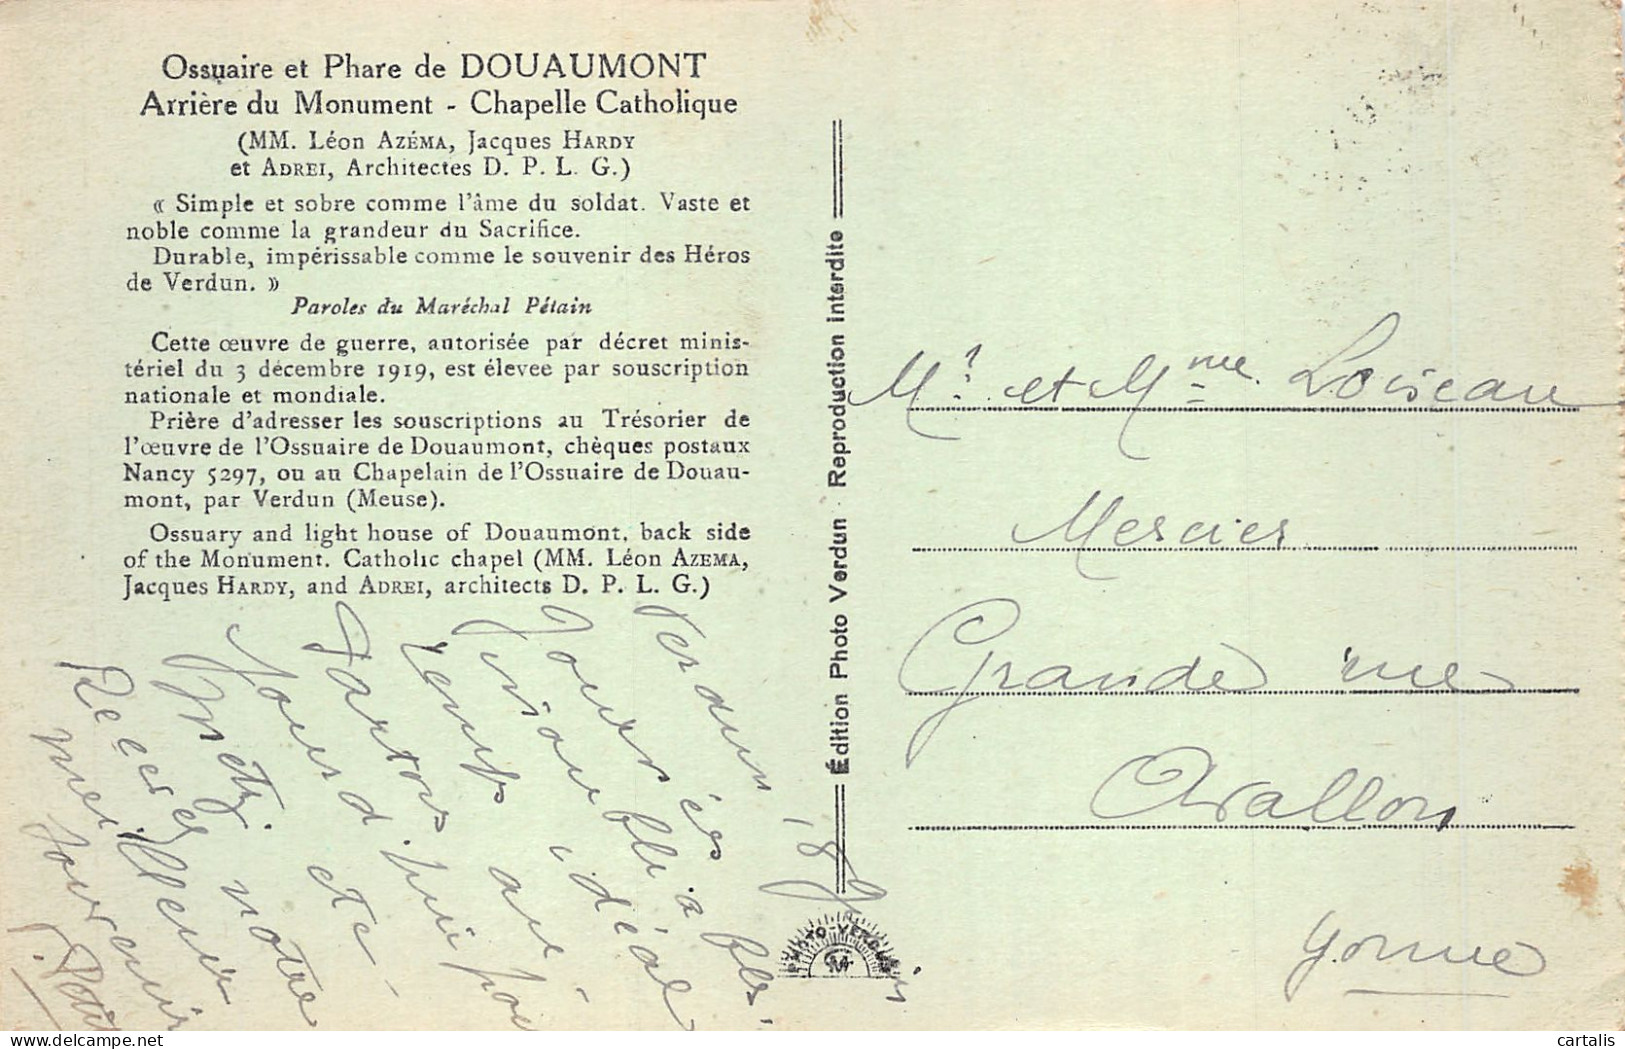 Ossuaire et Phare de DOUAUMONT
Arrière du Monument - Chapelle Catholique
(MM. Léon AZÉMA, Jacques HARDY
et ADREI, Architectes D. P. L. G.)
« Simple et sobre comme l'âme du soldat. Vaste et
noble comme la grandeur du Sacrifice.
Durable, impérissable comme le souvenir des Héros
de Verdun. »
Paroles du Maréchal Pétain
Cette œuvre de guerre, autorisée par décret minis-
tériel du 3 décembre 1919, est élevee par souscription
nationale et mondiale.
Prière d'adresser les souscriptions au Trésorier de
l'œuvre de l'Ossuaire de Douaumont, chèques postaux
Nancy 5297, ou au Chapelain de l'Ossuaire de Douau-
mont, par Verdun (Meuse).
Ossuary and light house of Douaumont, back side
of the Monument. Catholic chapel (MM. Léon AZEMA,
Jacques HARDY, and ADREI, architects D. P. L. G.)
Verdun, 18
Jours
inoubliables
temps idéal
Partons
aujourd'hui pour
Metz.
Recevez notre
meilleur
souvenir
Édition Photo Verdun - Reproduction interdite
PHOTO-VERDUN
Mr et Mme Loiseau
Mercier
Grande rue
Avallon
Yonne
cartalis